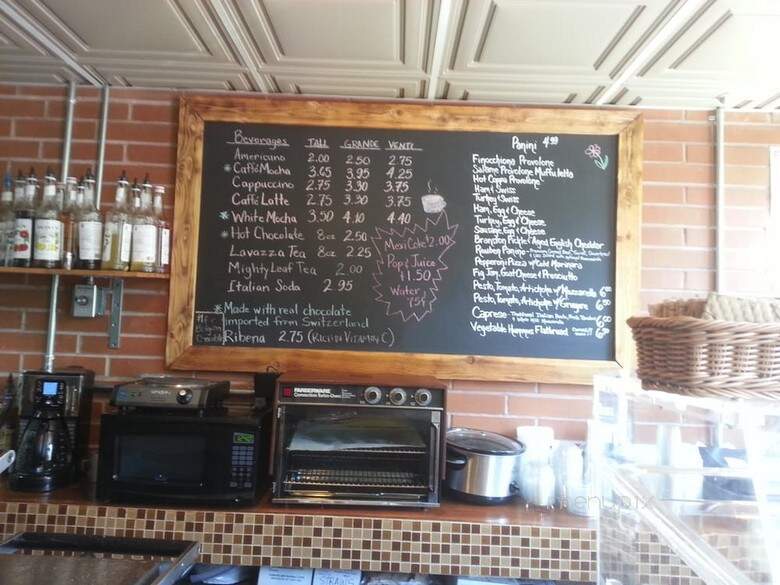 Beverages TALL GRANDE VENTI
Americano 2.00 2.50 2.75
* Caffe Mocha 3.65 3.95 4.25
Cappuccino 2.75 3.30 3.75
Caffe Latte 2.75 3.30 3.75
* White Mocha 3.50 4.10 4.40
* Hot Chocolate 8oz 2.50
Lavazza Tea 8oz 2.25
Mighty Leaf Tea 2.00
Italian Soda 2.95
* Made with real chocolate
imported from Switzerland
Ribena 2.75 (Rich in Vitamin C)
Mexi Coke 2.00
Pop & Juice
$1.50
Water
75¢
Panini 4.99
Finocchiona Provolone
Salame Provolone Muffuletta
Hot Coppa Provolone
Ham & Swiss
Turkey & Swiss
Ham, Egg & Cheese
Turkey, Egg & Cheese
Sausage, Egg & Cheese
Branston Pickle & Aged English Cheddar
Reuben Panino
Pepperoni Pizza w/ Marinara
Fig Jam, Goat Cheese & Prosciutto
Pesto, Tomato, Artichoke w/ Mozzarella
Pesto, Tomato, Artichoke w/ Gruyere
Caprese
Vegetable Hummus Flatbread
FARBERWARE
Convection Turbo-Oven
STRAWS
menupix